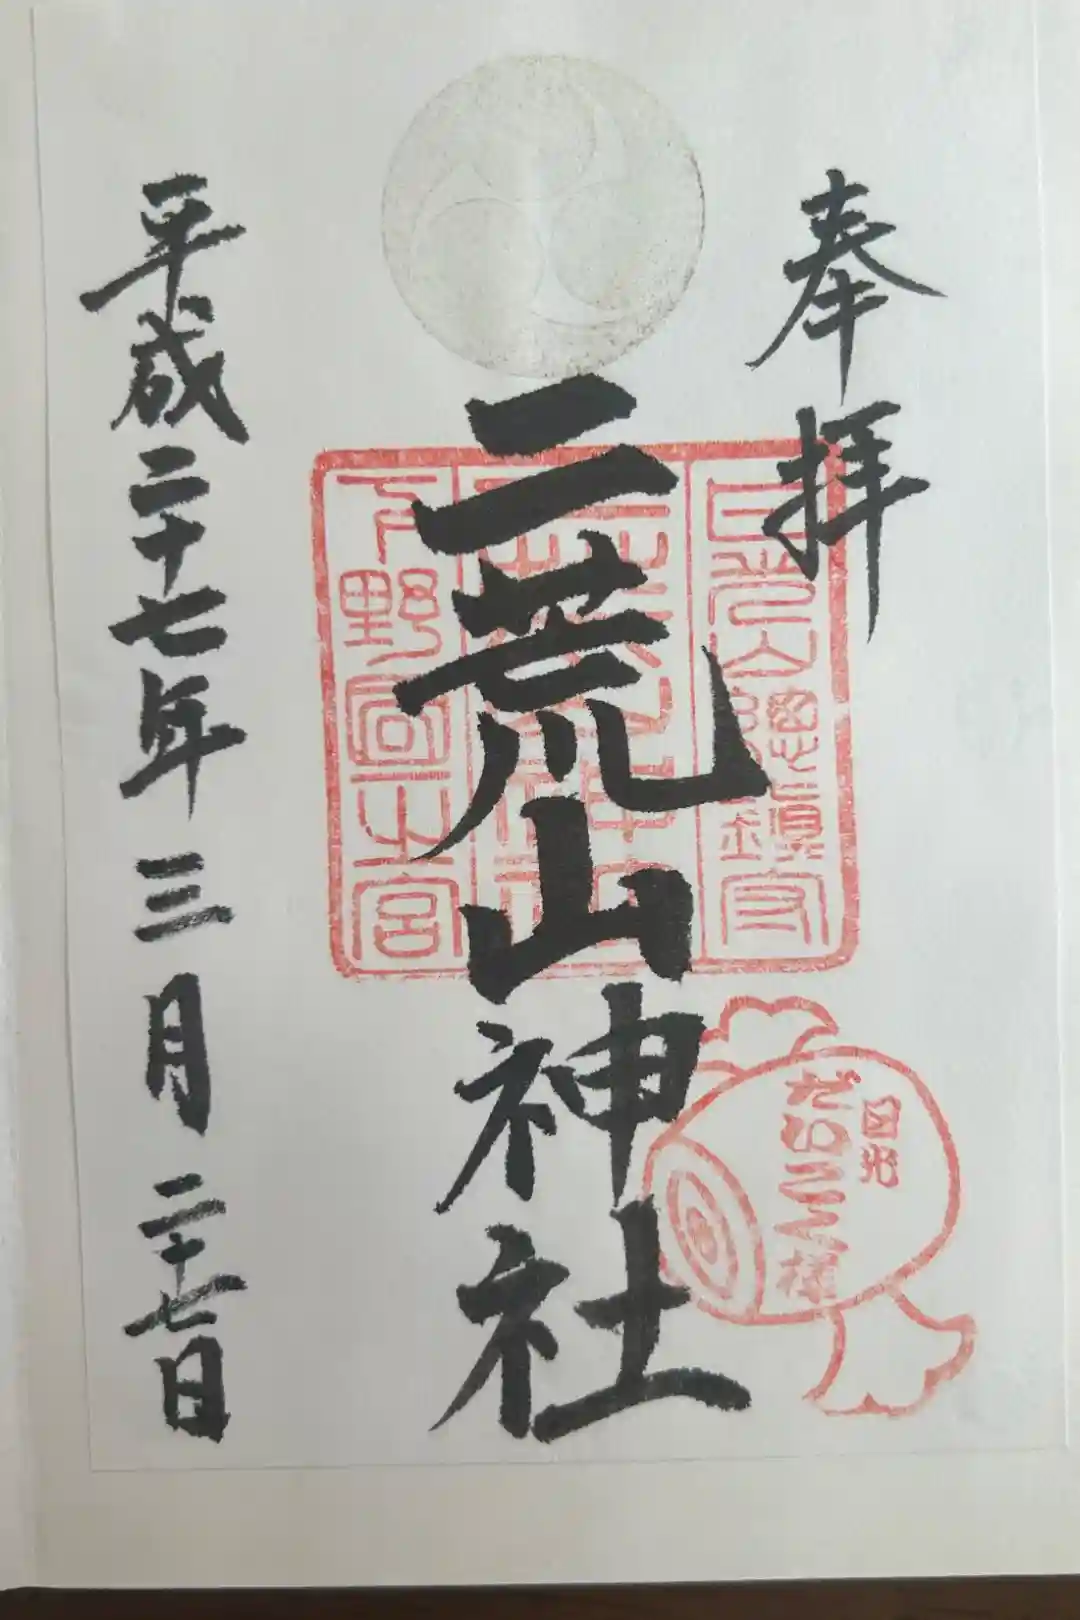 奉拝
日光山總鎮守
二荒山神社
下野國一之宮
二荒山神社
日光
だいこく様
平成二十七年三月二十七日